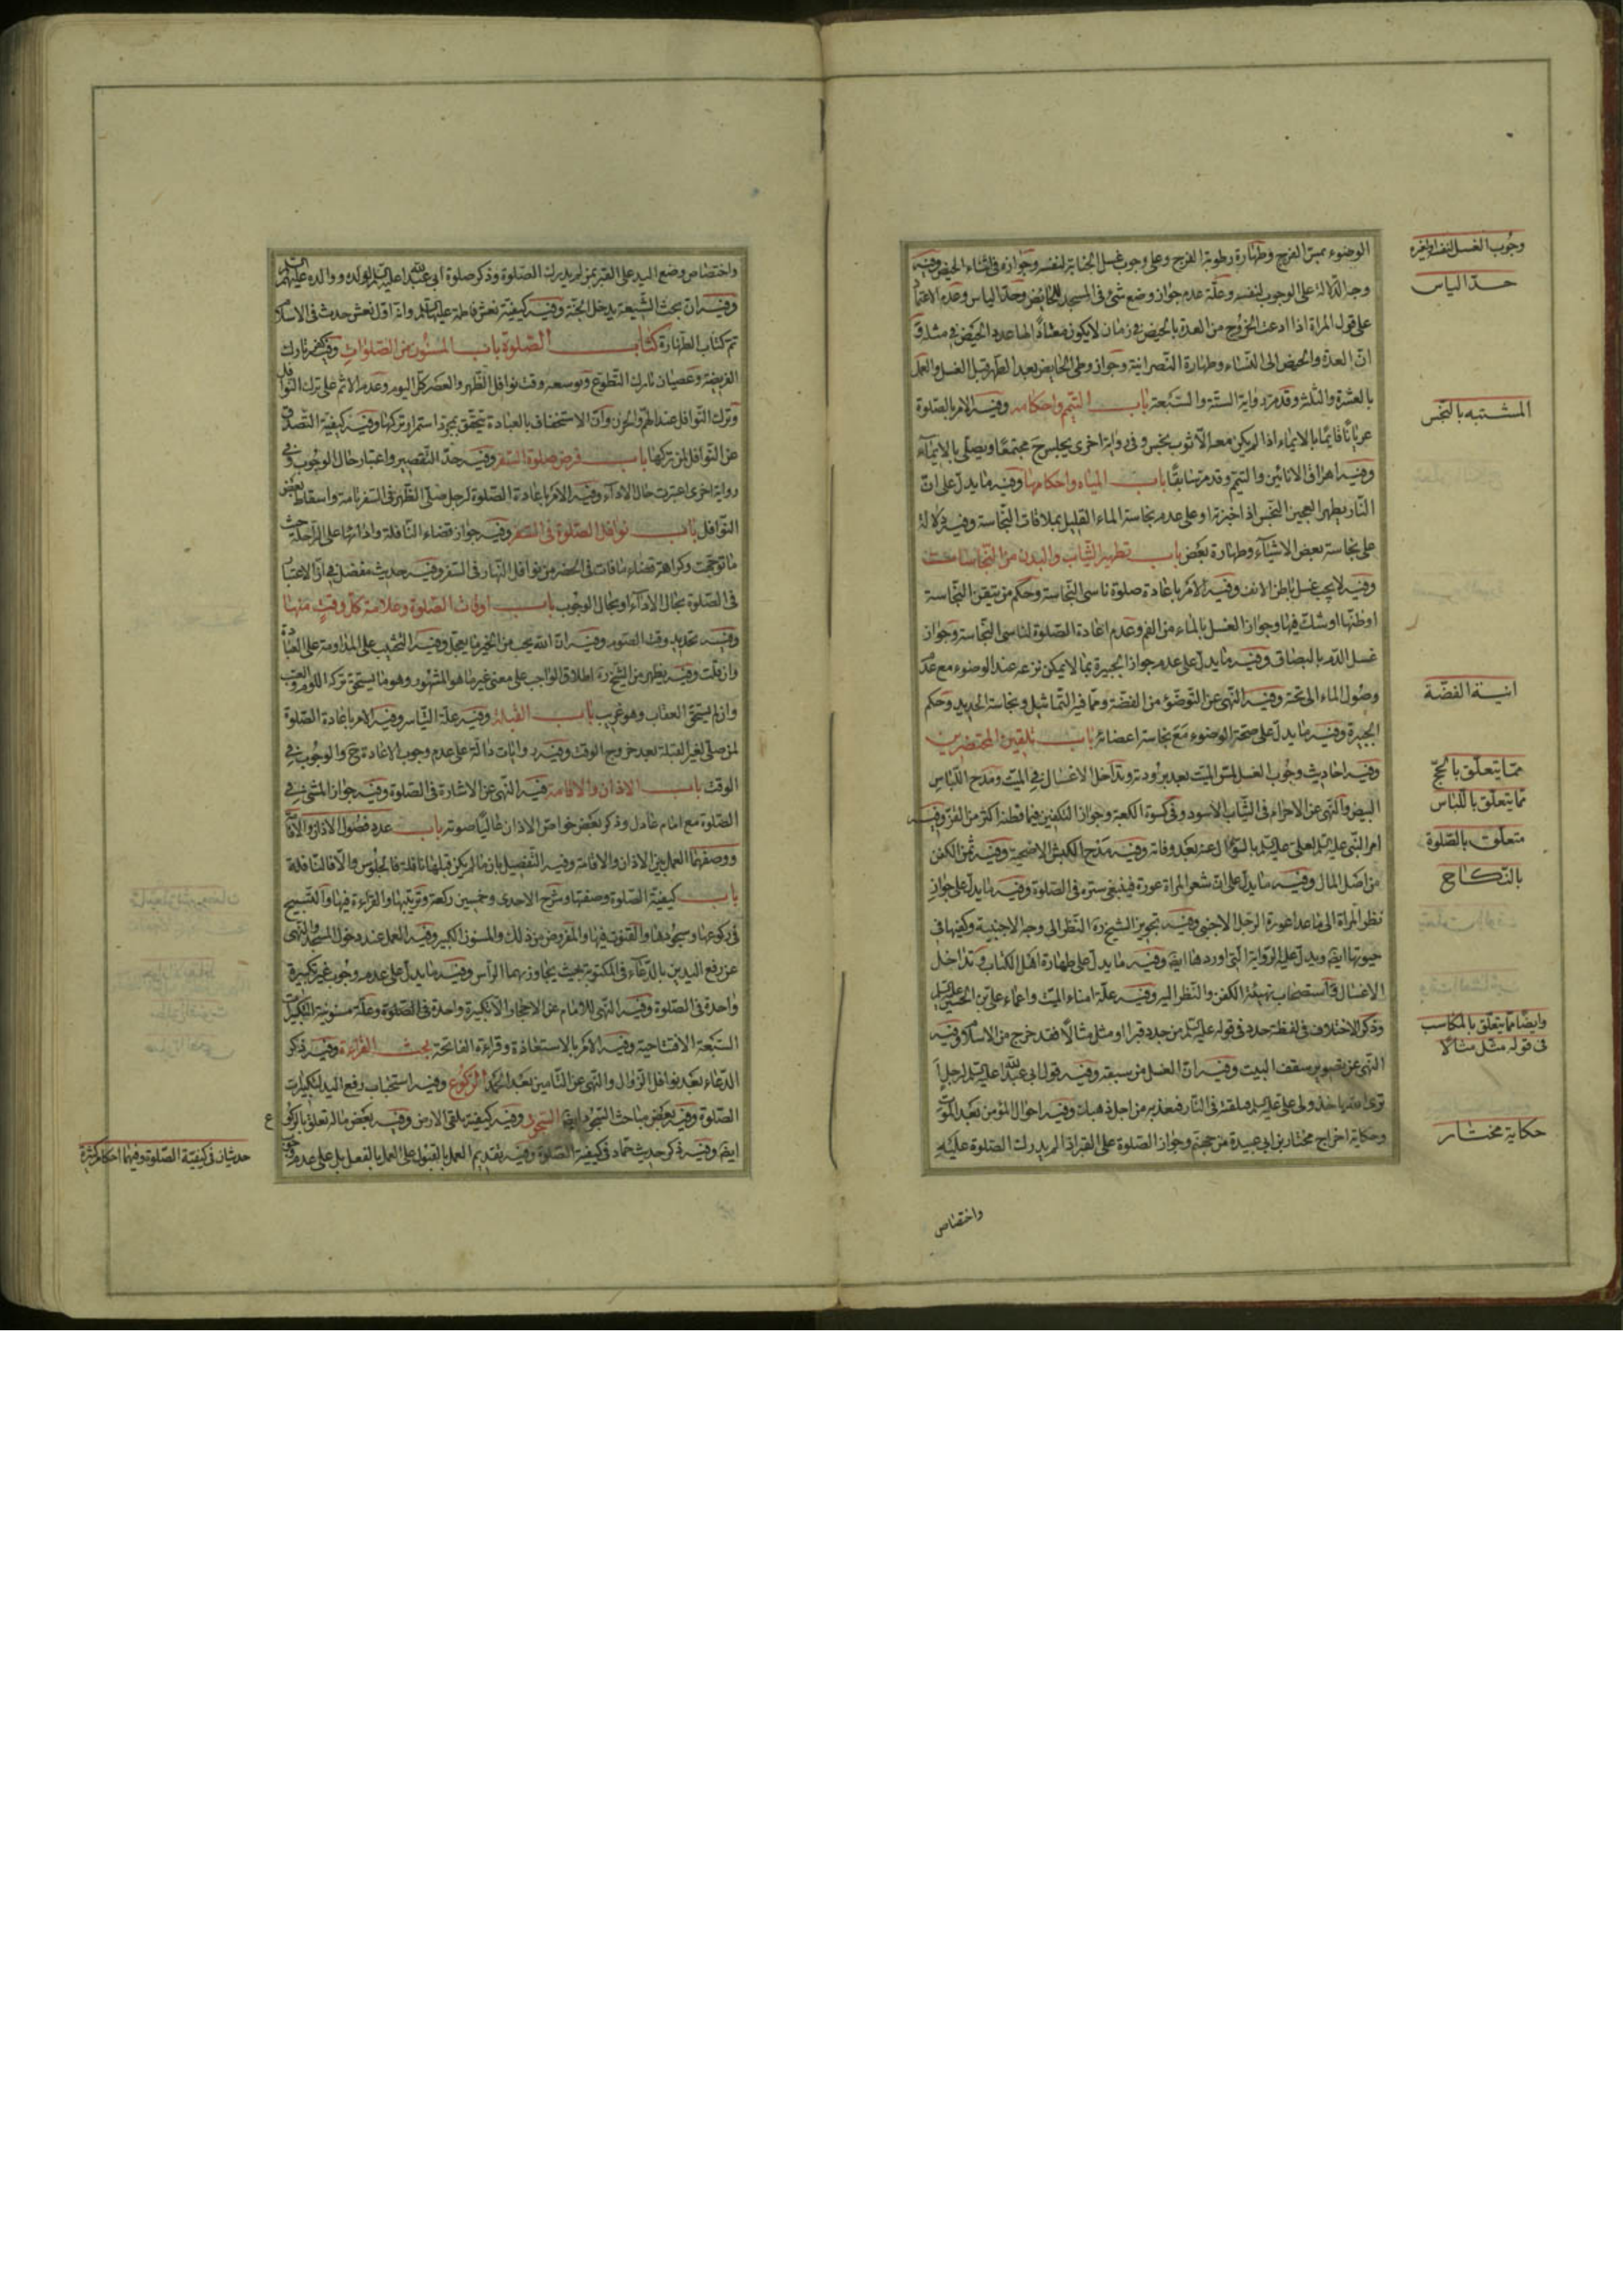 الوضوء بمس الفرج وطهارة رطوبة الفرج وعلى وجوب غسل الجنابة لنفسه وجوازه في اثناء الحيض وفيه
وجه الدلالة على الوجوب لنفسه وعلة عدم جواز وضع شئ في المسجد للحايض وحد الياس وعدم الاعتماد
على قول المراة اذا ادعت الخروج من العدة بالحيض في زمان لا يكون معتادا لها عدد الحيض في مثله و
ان العدة والحيض الى النساء وطهارة النصرانية وجواز وطى الحايض بعد الطهر قبل الغسل والعمل
بالعشرة والثلثة وقد مر رواية الستة والسبعة باب التيمم واحكامه وفيه الامر بالصلوة
عريانا قايما بالايماء اذا لم يكن معه الا ثوب نجس وفي رواية اخرى يجلس ح مجتمعا ويصلى بالايماء
وفيه اهراق الانائين والتيمم وقد مر سابقا باب المياه واحكامها وفيه ما يدل على ان
النار يطهر العجين النجس اذا خبزته او على عدم نجاسة الماء القليل بملاقات النجاسة وفيه دلالة
على نجاسة بعض الاشياء وطهارة بعض باب تطهير الثياب والبدن من النجاسات
وفيه لا يجب غسل باطن الانف وفيه الامر باعادة صلوة ناسى النجاسة وحكم من تيقن النجاسة
او ظنها او شك فيها وجواز الغسل بالماء من الفم وعدم اعادة الصلوة لناسى النجاسة وجواز
غسل الدم بالبصاق وفيه ما يدل على عدم جواز الجبيرة بما لا يمكن نزعه عند الوضوء مع عدم
وصول الماء الى تحته وفيه النهى عن التوضؤ من الفضة وما فيه التماثيل ونجاسة الحديد وحكم
الجبيرة وفيه ما يدل على صحة الوضوء مع نجاسة اعضائه باب تلقين المحتضرين
وفيه احاديث وجوب الغسل لمس الميت بعد برودته وتداخل الاغسال في الميت ومدح اللباس
البيض والنهى عن الاحرام في الثياب الاسود وفى كسوة الكعبة وجواز التكفين فيما قطنه اكثر من القز وفيه
امر النبى عليه لعلى عليه السلم بعد وفاته وفيه مدح الكبش الاضحية وفيه ثمن الكفن
من اصل المال وفيه ما يدل على ان شعر المراة عورة فينبغى ستره في الصلوة وفيه ما يدل على جواز
نظر المراة الى ما عدا عورة الرجل الاجنبى وفيه تجويز الشيخ ره النظر الى وجه الاجنبية وكفيها في
حيوتها ايضا ويدل عليه الرواية التى اوردها ايضا وفيه ما يدل على طهارة اهل الكتاب وتداخل
الاغسال واستصحاب تهيئة الكفن والنظر اليه وفيه علة امناء الميت واغماء على بن الحسين عليه السلم
وذكر الاختلاف في لفظة حدد في قوله عليه السلم من جدد قبرا او مثل مثالا فقد خرج من الاسلام وفيه
النهى عن تصوير سقف البيت وفيه ان الغسل من سبقه وفيه قول ابى عبد الله عليه السلم لرجل
وفيه احوال المؤمن بعد الموت
وحكاية اخراج مختار بن ابى عبيدة من جهنم وجواز الصلوة على القبر اذا لم يدرك الصلوة عليه
وجوب الغسل لنفسه او لغيره
حد الياس
المشتبه بالنجس
انية الفضة
مما يتعلق بالحج
مما يتعلق باللباس
متعلق بالصلوة
بالنكاح
وايضا مما يتعلق بالمكاسب
فى قوله مثل مثالا
حكاية مختار
واختصاص
واختصاص وضع اليد على القبر بمن لم يدرك الصلوة وذكر صلوة ابى عبد الله عليه السلم لولده ووالده عليهم السلم
وفيه ان بحث الشيعة يدخل الجنة وفيه كيفية نعش فاطمة عليها السلم وانه اول نعش حدث في الاسلام
تم كتاب الطهارة كتاب الصلوة باب المسنون من الصلوات وفيه كفر تارك
الفريضة وعصيان تارك التطوع وتوسعه وقت نوافل الظهر والعصر كل اليوم وعدم الاثم على ترك النوافل
وترك النوافل عند الهم والحزن وان الاستخفاف بالعبادة يتحقق بمجرد استمرار تركها وفيه كيفية التصدق
عن النوافل لمن تركها باب فرض صلوة السفر وفيه حد التقصير واعتبار حال الوجوب وفي
رواية اخرى اعتبرت حال الاداء وفيه الامر باعادة الصلوة لرجل صلى الظهر في السفر تامة واسقاط بعض
النوافل باب نوافل الصلوة في السفر وفيه جواز قضاء النافلة واداءها على الراحلة حيث
ما توجهت وكراهة قضاء ما فات في الحضر من نوافل النهار في السفر وفيه حديث مفصل في ان الاعتبار
في الصلوة بحال الاداء او بحال الوجوب باب اوقات الصلوة وعلامة كل وقت منها
وفيه تحديد وقت الصوم وفيه ان الله يحب من الخير ما يعجل وفيه الترغيب على المداومة على العبادة
وان قلت وفيه يظهر من الشيخ ره اطلاق الواجب على معنى غير ما هو المشهور وهو ما يستحق تركه اللوم والعتب
وان لم يستحق العقاب وهو غريب باب القبلة وفيه علة التياسر وفيه الامر باعادة الصلوة
لمن صلى لغير القبلة بعد خروج الوقت وفيه روايات دالة على عدم وجوب الاعادة ح والوجوب في
الوقت باب الاذان والاقامة فيه النهى عن الاشارة في الصلوة وفيه جواز المشى في
الصلوة مع امام عادل وذكر بعض خواص الاذان عاليا صوته باب عدد فصول الاذان والاقامة
ووصفهما العمل بين الاذان والاقامة وفيه التفصيل بان ما لم يكن قبلها نافلة فالجلوس والا فالنافلة
باب كيفية الصلوة وصفتها وشرح الاحدى وخمسين ركعة وترتيبها والقراءة فيها والتسبيح
في ركوعها وسجودها والقنوت فيها والمفروض من ذلك والمسنون الكبير وفيه العمل عند دخول المسجد والنهى
عن رفع اليدين بالدعاء في المكتوبة بحيث يجاوز بهما الراس وفيه ما يدل على عدم وجوب غير تكبيرة
واحدة في الصلوة وفيه النهى للامام عن الاجهار الا تكبيرة واحدة في الصلوة وعلة مسنونية التكبيرات
السبعة الافتتاحية وفيه الامر بالاستعاذة وقراءة الفاتحة بحث القراءة وفيه ذكر
الدعاء بعد نوافل الزوال والنهى عن التامين بعد الحمد الركوع وفيه استحباب رفع اليد لتكبيرات
الصلوة وفيه بعض مباحث السجود ايضا السجود وفيه كيفية تلقى الارض وفيه بعض ماله تعلق بالركوع
ايضا وفيه ذكر حديث حماد في كيفية الصلوة وفيه تقديم العمل بالقول على العمل بالفعل بل على عدم
ع
حديثان في كيفية الصلوة وفيهما احكام كثيرة